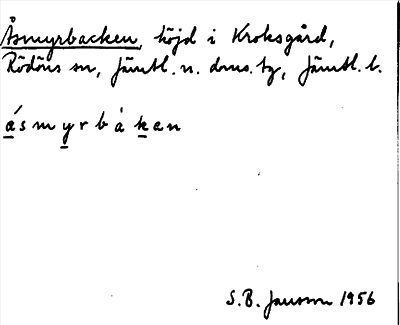 Åsmyrbacken, höjd i Kroksgård,
Rödöns sn, Jämtl. n. doms. tg, Jämtl. l.
ásmyrbàken
S.B. Jansson 1956